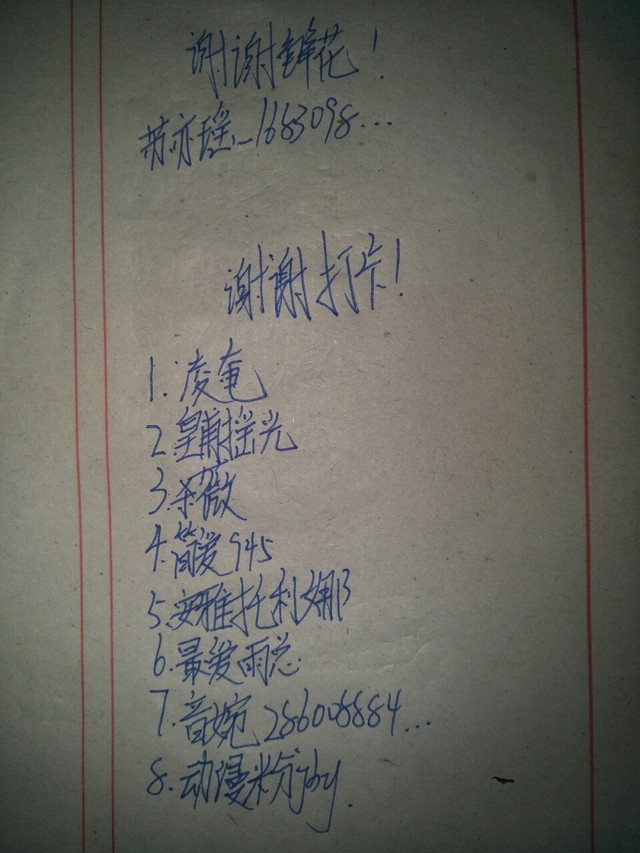 谢谢鲜花！
苏亦瑶_1683098...
谢谢打卡！
1.凌奄
2.皇甫摇光
3.杀薇
4.简爱945
5.安雅托利娜
6.最爱雨总
7.音婉286008884...
8.动漫粉jby